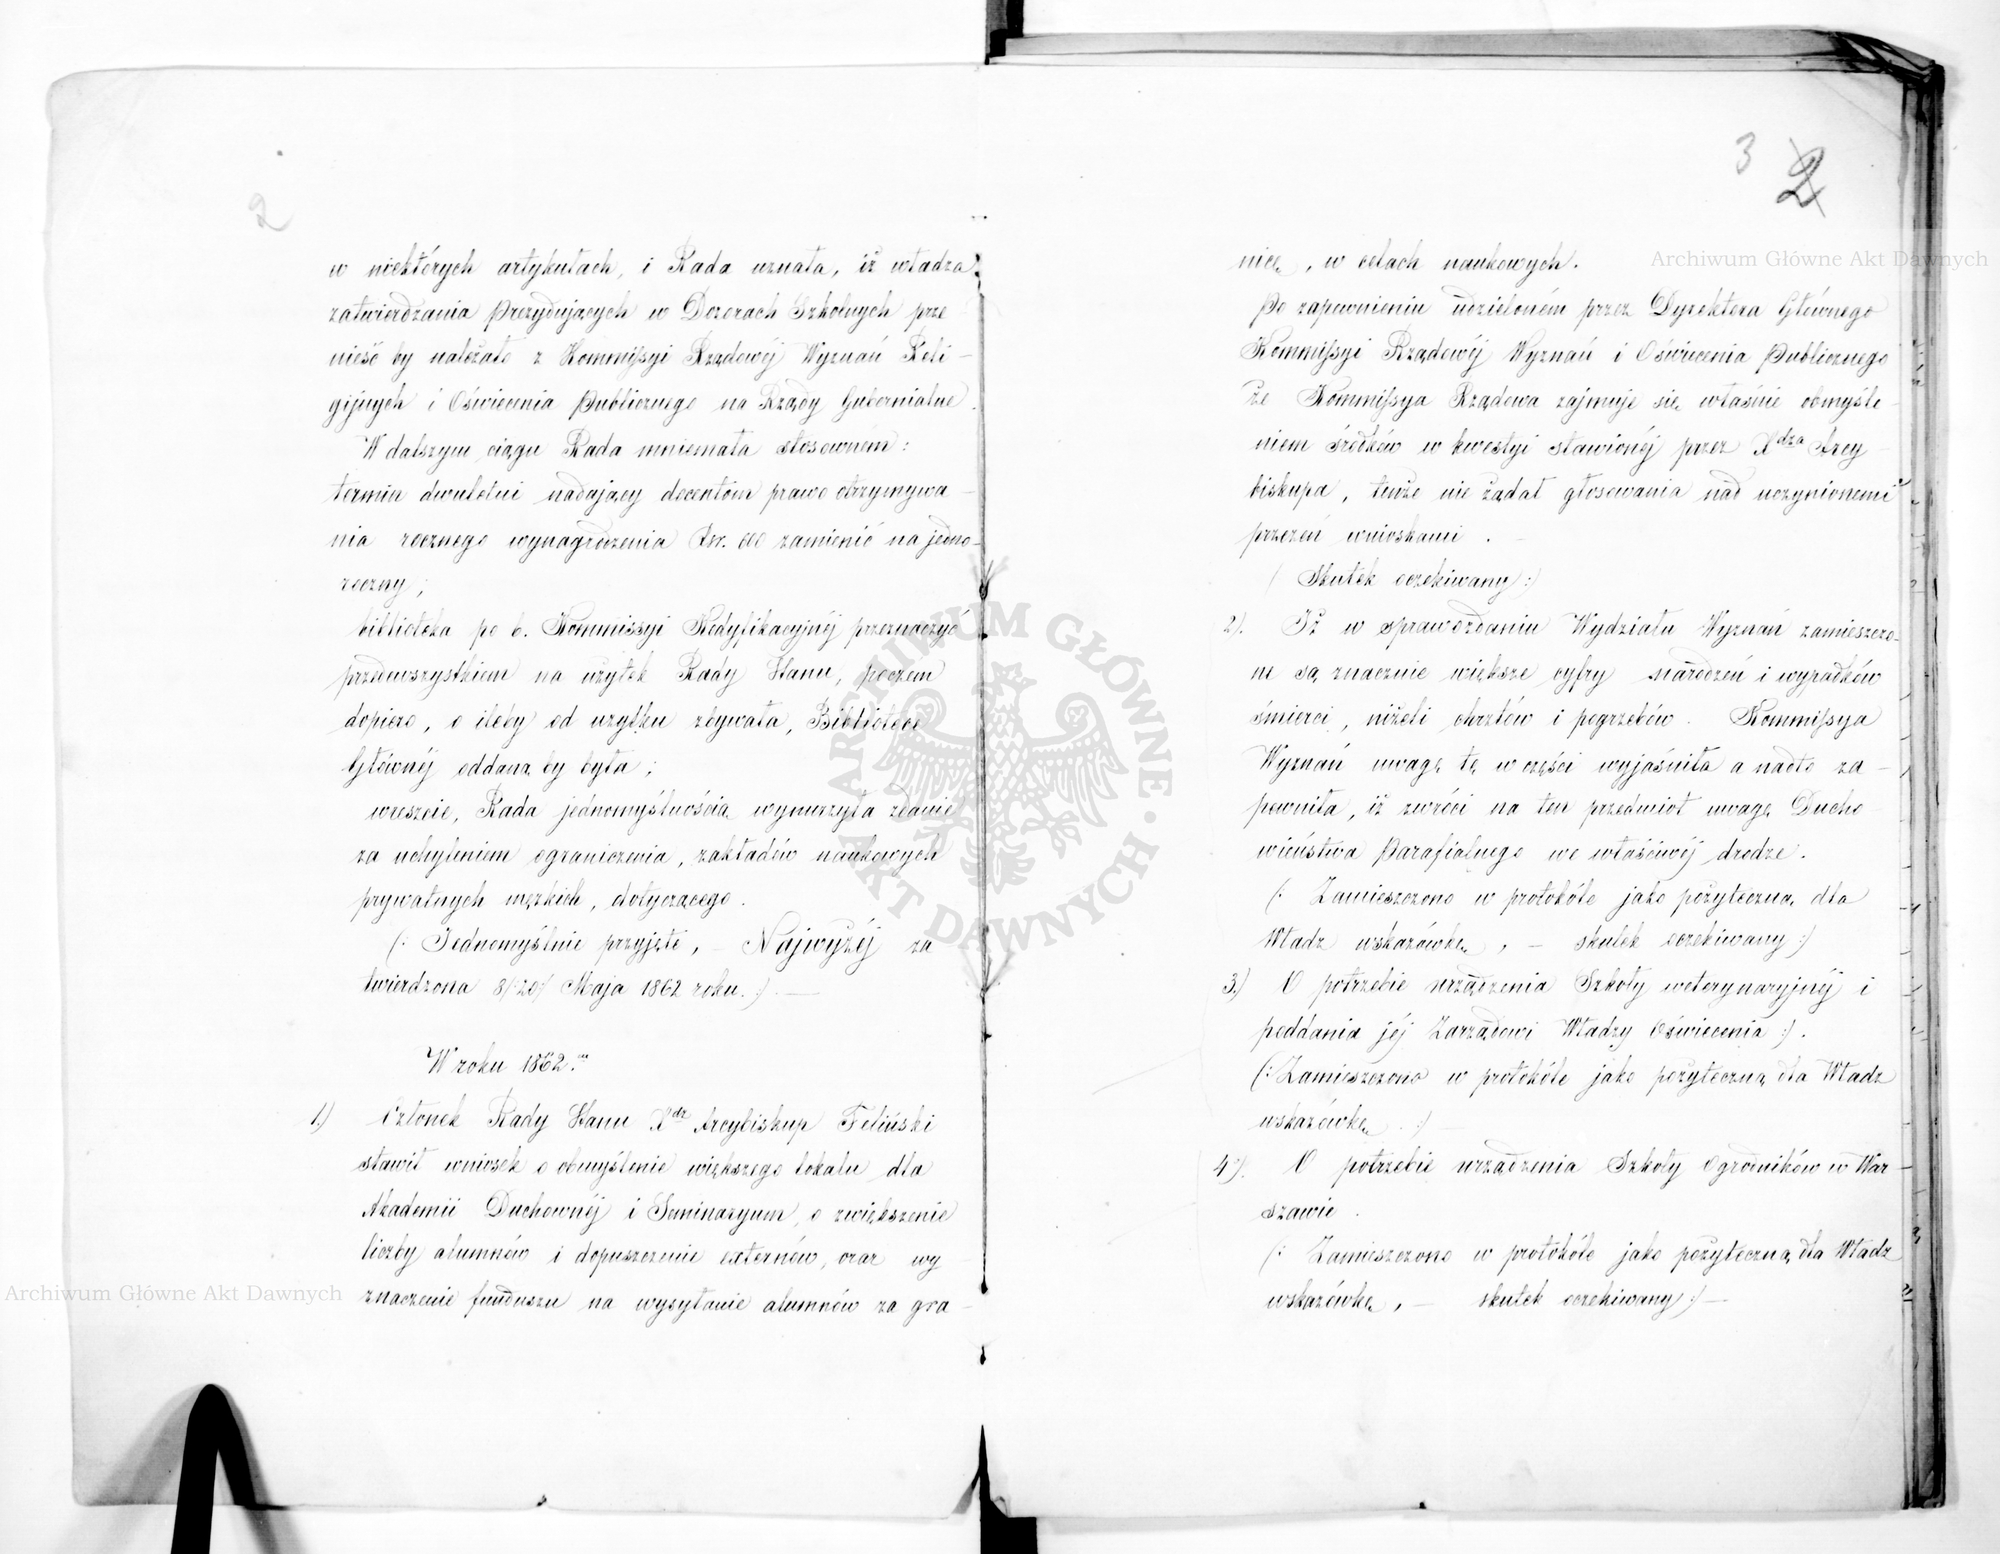 2
w niektórych artykułach, i Rada uznała, iż władza
zatwierdzania Prezydujących w Dozorach Szkolnych prze
nieść by należało z Kommissyi Rządowéj Wyznań Reli-
gijnych i Oświecenia Publicznego na Rządy Gubernialne.
W dalszym ciągu Rada mniemała stosowném:
termin dwuletni nadający docentom prawo otrzymywa-
nia rocznego wynagrodzenia Rsr. 600 zamienić na jedno-
roczny;
biblioteka po b. Kommissyi Kodyfikacyjnéj przeznaczyć
przedewszystkiem na użytek Rady Stanu, poczem
dopiero, o ileby od użytku zbywała, Bibliotece
Głównéj oddaną by była;
wreszcie, Rada jednomyślnością wynurzyła zdanie
za uchyleniem ograniczenia, zakładów naukowych
prywatnych męzkich, dotyczącego.
(: Jednomyślnie przyjęte, – Najwyżéj za
twierdzona 8/20/ Maja 1862 roku. :) —
W roku 1862.
1.) Członek Rady Stanu Xdz Arcybiskup Feliński
stawił wniosek o obmyślenie większego lokalu dla
Akademii Duchownéj i Seminaryum, o zwiększenie
liczby alumnów i dopuszczenie externów, oraz wy-
znaczenie funduszu na wysyłanie alumnów za gra-
3 2
nicę, w celach naukowych.
Po zapewnieniu udzieloném przez Dyrektora Głównego
Kommissyi Rządowéj Wyznań i Oświecenia Publicznego
że Kommissya Rządowa zajmuje się właśnie obmyśle-
niem środków w kwestyi stawionéj przez Xdza Arcy-
biskupa, tenże nie żądał głosowania nad uczynionemi
przezeń wnioskami.
( Skutek oczekiwany :)
2). Iż w sprawozdaniu Wydziału Wyznań zamieszczo-
ne są znacznie większe cyfry narodzeń i wypadków
śmierci, niżeli chrztów i pogrzebów. Kommissya
Wyznań uwagę tę w części wyjaśniła a nadto za-
pewniła, iż zwróci na ten przedmiot uwagę Ducho-
wieństwa Parafialnego we właściwéj drodze.
(: Zamieszczono w protokóle jako pożyteczną dla
Władz wskazówkę, – skutek oczekiwany :)
3.) O potrzebie urządzenia Szkoły weterynaryjnéj i
poddania jéj Zarządowi Władzy Oświecenia :).
(: Zamieszczono w protokóle jako pożyteczną dla Władz
wskazówkę. :) —
4.) O potrzebie urządzenia Szkoły Ogrodników w War-
szawie.
(: Zamieszczono w protokóle jako pożyteczną dla Władz
wskazówkę, – skutek oczekiwany :) —
Archiwum Główne Akt Dawnych
Archiwum Główne Akt Dawnych
ARCHIWUM GŁÓWNE AKT DAWNYCH